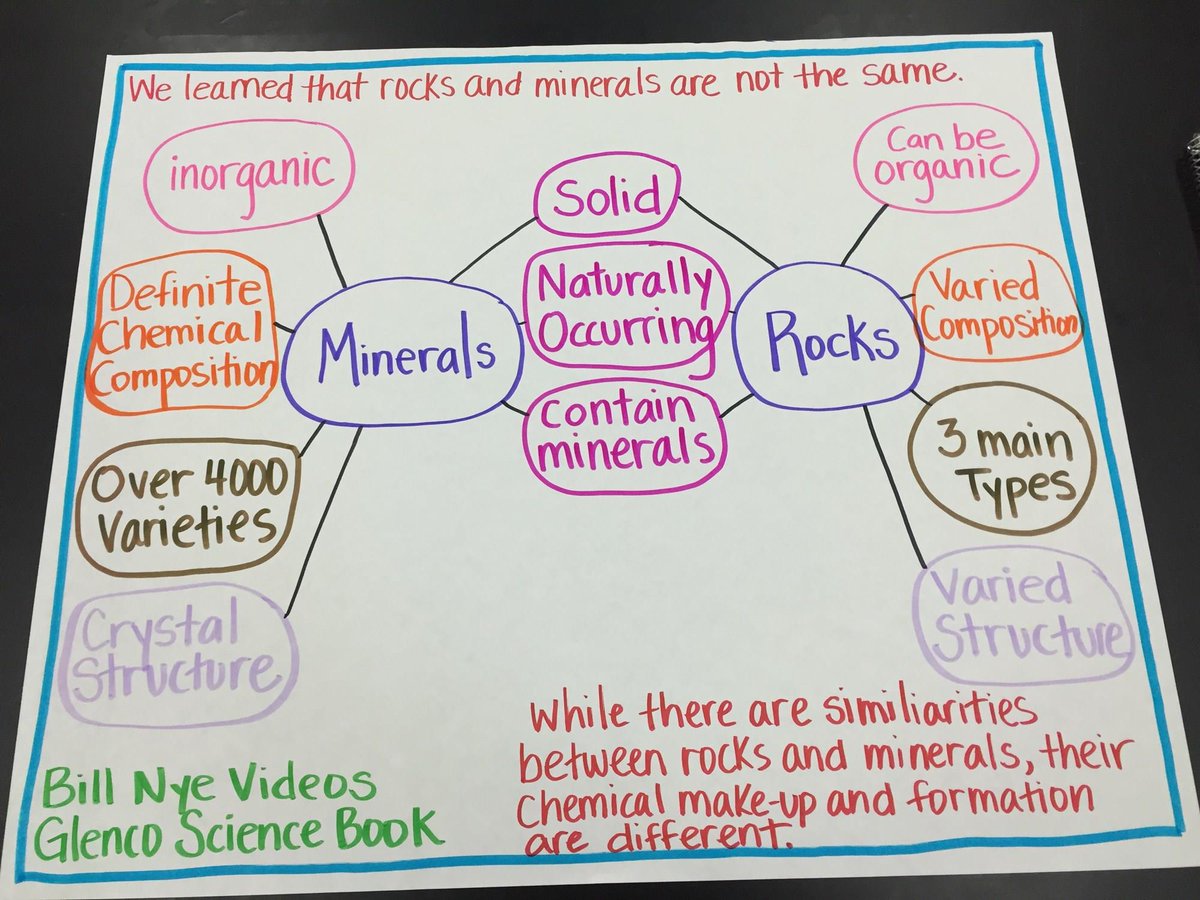 We learned that rocks and minerals are not the same.
inorganic
Definite
Chemical
Composition
Over 4000
Varieties
Crystal
Structure
Minerals
Solid
Naturally
Occurring
contain
minerals
Rocks
Can be
organic
Varied
Composition
3 main
Types
Varied
Structure
While there are similiarities
between rocks and minerals, their
chemical make-up and formation
are different.
Bill Nye Videos
Glenco Science Book